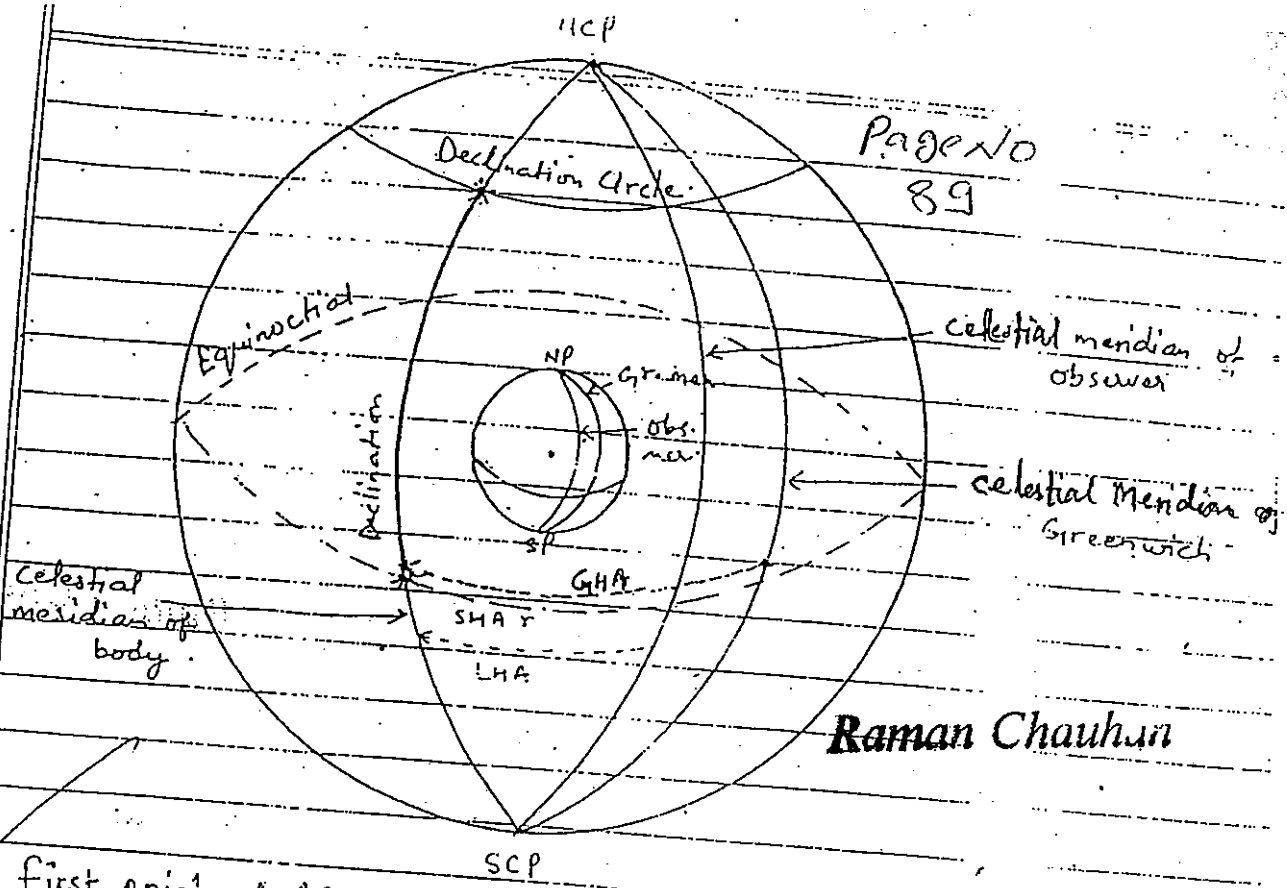 NCP
Page No
89
Declination Circle.
Equinoctial
Celestial meridian of
observer
NP
Declination
obs.
mer.
Celestial Meridian of
Greenwich
SP
GHA
Celestial
meridian of
body.
SHA γ
LHA
Raman Chauhan
SCP
First point